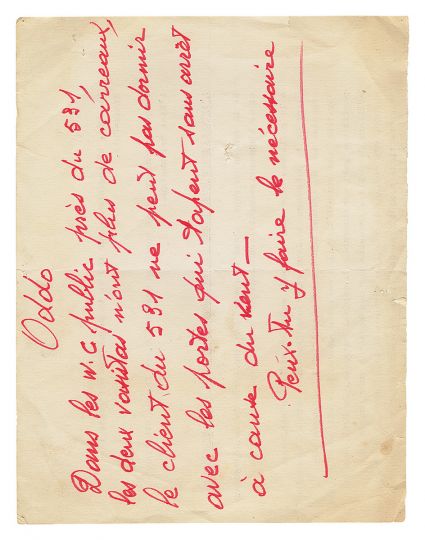 Oddo
Dans les W.C public près du 531,
les deux vasistas n'ont plus de carreaux,
le client du 531 ne peut pas dormir
avec les portes qui tapent sans arrêt
à cause du vent —
Peux-tu y faire le nécessaire